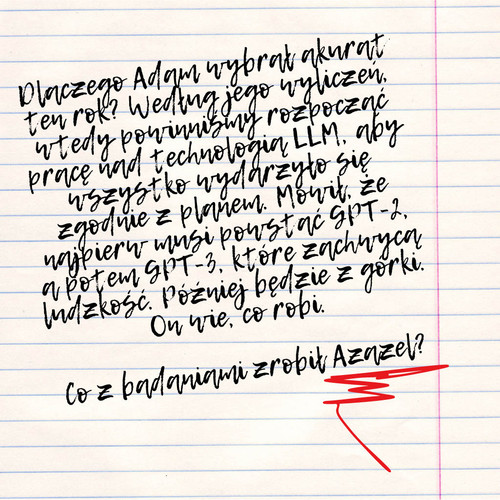 Dlaczego Adam wybrał akurat
ten rok? Według jego wyliczeń,
wtedy powinniśmy rozpocząć
pracę nad technologią LLM, aby
wszystko wydarzyło się
zgodnie z planem. Mówił, że
najpierw musi powstać GPT-2,
a potem GPT-3, które zachwycą
ludzkość. Później będzie z górki.
On wie, co robi.
Co z badaniami zrobił Azazel?